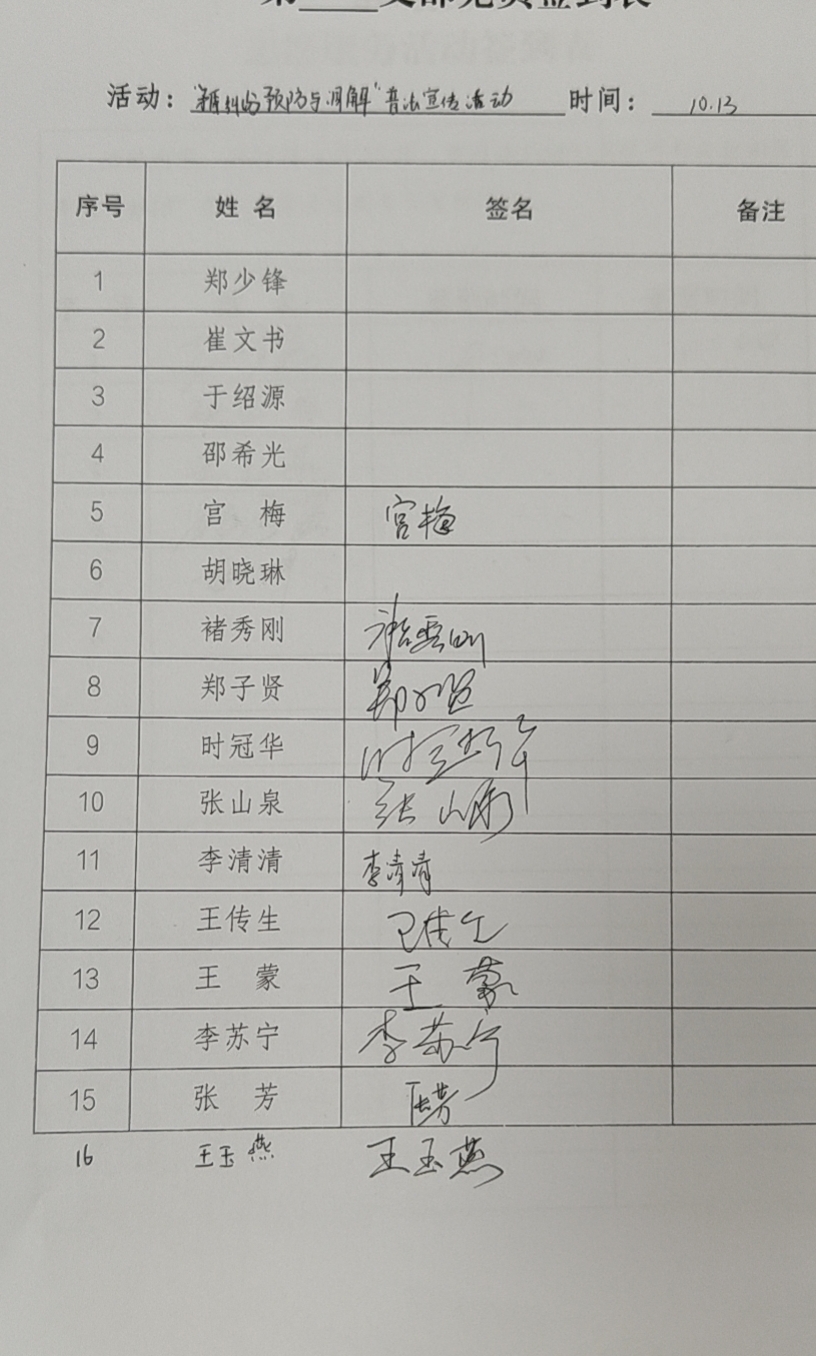 第____支部党员签到表
活动：纠纷预防与调解"普法宣传活动 时间：10.13
序号 姓 名 签名 备注
1 郑少锋
2 崔文书
3 于绍源
4 邵希光
5 宫 梅 宫梅
6 胡晓琳
7 褚秀刚 褚秀刚
8 郑子贤 郑子贤
9 时冠华 时冠华
10 张山泉 张山泉
11 李清清 李清清
12 王传生 王传生
13 王 蒙 王 蒙
14 李苏宁 李苏宁
15 张 芳 张芳
16 王玉燕 王玉燕